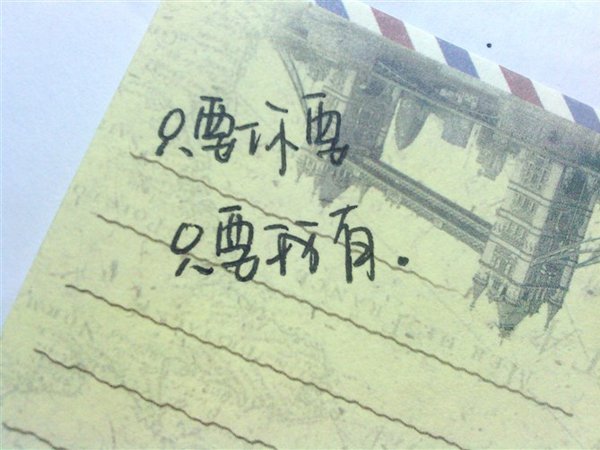 只要你要
只要我有.